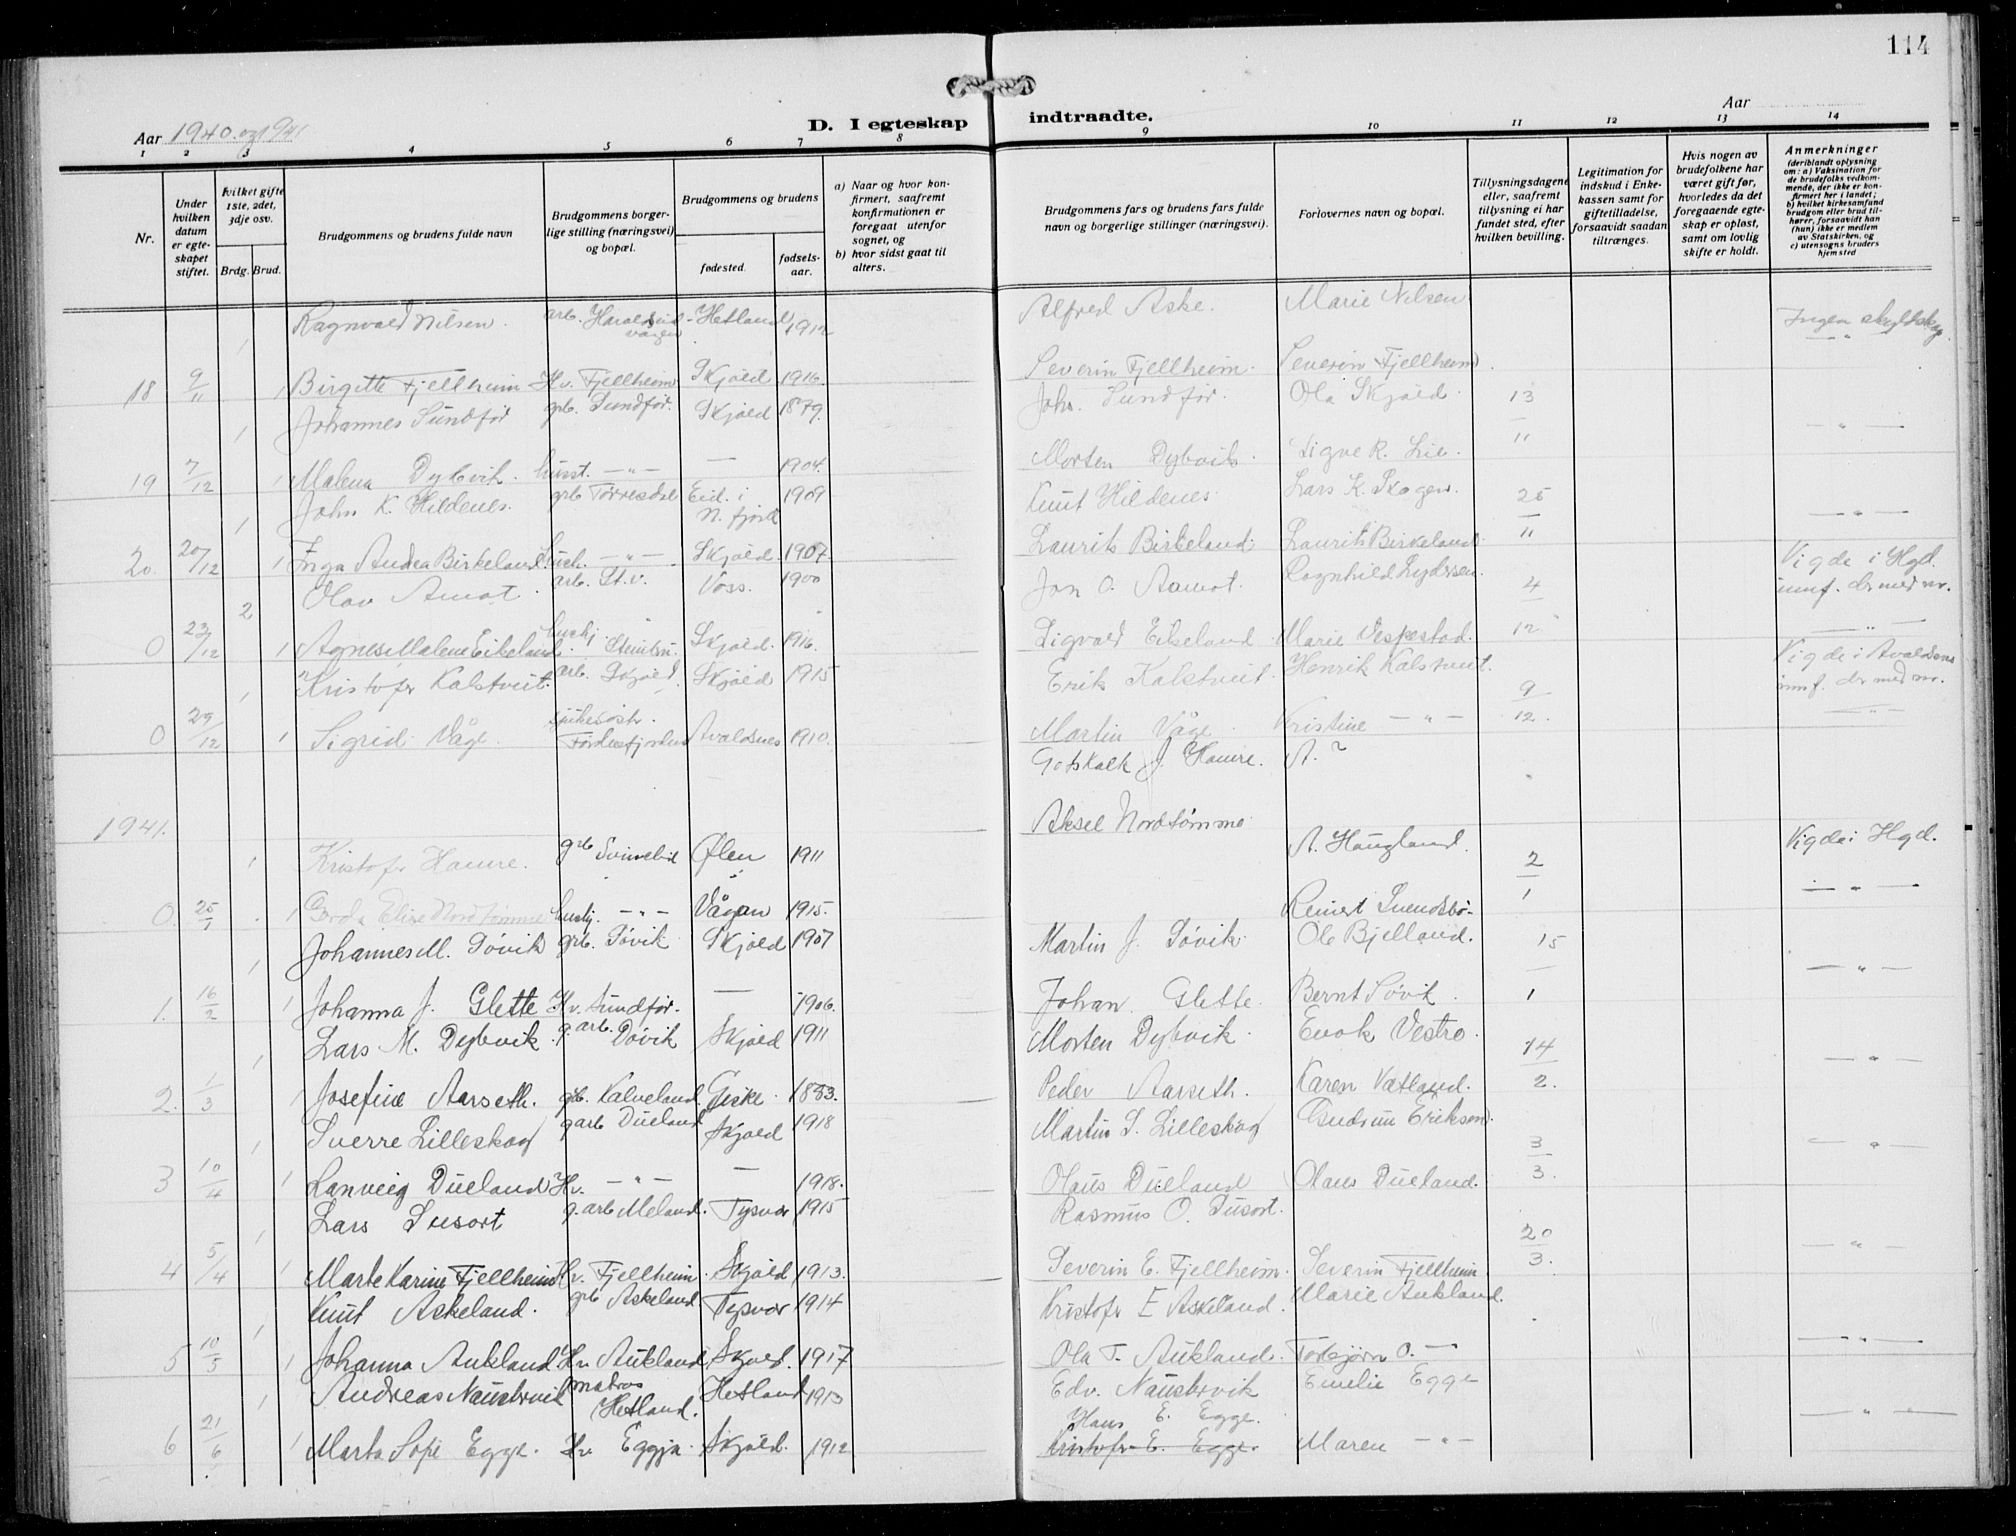 114
Aar 1940 og 1941
D. I egteskap indtraadte.
Aar
1 2 3 4 5 6 7 8 9 10 11 12 13 14
Nr.
Under hvilken datum er egteskapet stiftet.
hvilket gifte 1ste, 2det, 3dje osv.
Brdg. Brud.
Brudgommens og brudens fulde navn
Brudgommens borgerlige stilling (næringsvei) og bopæl.
Brudgommens og brudens
fødested.
fødselsaar.
a) Naar og hvor konfirmert, saafremt konfirmationen er foregaat utenfor sognet, og
b) hvor sidst gaat til alters.
Brudgommens fars og brudens fars fulde navn og borgerlige stillinger (næringsvei).
Forlovernes navn og bopæl.
Tillysningsdagene eller, saafremt tillysning ei har fundet sted, efter hvilken bevilling.
Legitimation for indskud i Enkekassen samt for giftetilladelse, forsaavidt saadan tiltrænges.
Hvis nogen av brudefolkene har været gift før, hvorledes da det foregaaende egteskap er opløst, samt om lovlig skifte er holdt.
Anmerkninger (deriblandt oplysning om: a) Vaksination for de brudefolks vedkommende, der ikke er konfirmert her i landet; b) hvilket kirkesamfund brudgom eller brud tilhører, forsaavidt han (hun) ikke er medlem av Statskirken, og c) utensogns bruders hjemsted
1 Ragnvald Nilsen. arb. Haraldseidvågen Hetland 1912 Alfred Aske. Marie Nilsen Ingen skyldskap
18 9/11 1 Birgitte Fjellheim Hv. Fjellheim Skjold 1916. Severin Fjellheim. Severin Fjellheim. — " —
1 Johannes Sundfør grb. Sundfør. Skjold 1879. Joh. Sundfør. Ola Skjold. 13/11 — " —
19 7/12 1 Malena Dybvik. husst. — " — — 1904. Morten Dybvik Signe R. Lie.
1 John K. Hildenes. grb Torresdal Eid i N. fjord 1909 Knut Hildenes. Lars K. Skogen. 25/11 — " —
20. 20/12 1 Inga Andrea Birkeland. — " — Skjold. 1907. Laurits Birkeland. Laurits Birkeland.
2 Olav Amot. arb. St.v. Voss. 1900 Jon O. Aamot. Ragnhild Lydersen. 4/12 Vigde i Hgd. innf. der med nr.
0 23/12 1 Agnes Malene Eikeland Skjold. 1916. Sigvald Eikeland Marie Vespestad. — " —
1 Kristofer Kalstveit. arb. Skjold Skjold 1915 Erik Kalstveit Henrik Kalstveit. 9/12. Vigde i Avaldsnes innf. der med nr.
0 29/12 1 Sigrid Våge. sjukesøstr. Førdesfjorden Avaldsnes 1910. Martin Våge. Kristine — " — — " —
1941.
1 Kristofer Haure. grb Ølen 1911 Gotskalk J. Haure. A. ? 2/1 Vigde i Hgd.
0. 25/1 1 Gerda Elise Nordtømme husly. — " — Vågan 1915. Aksel Nordtømme A. Haugland. — " —
1 Johannes M. Søvik grb. Søvik Skjold 1907 Martin J. Søvik. Reinert Svendsbø- Ole Bjelland. 15/1 — " —
1. 16/2 1 Johanna J. Glette Hv. Sundfør. — 1906. Johan Glette. Bernt Søvik.
1 Lars M. Dybvik. g. arb. Døvik Skjold 1911 Morten Dybvik. Enok Vestre. 14/2. — " —
2. 1/3 1 Josefine Aarseth. grb. Kalveland Giske. 1883. Peder Aarseth. Karen Vatland.
1 Sverre Lilleskog g arb Dueland Skjold 1918 Martin S. Lilleskog Gudrun Eriksen. 3/3. — " —
3 10/4 1 Lanveig Dueland Hv. — " — — 1918. Olaus Dueland Olaus Dueland.
1 Lars Susort g. arb Meland. Tysvær 1915 Rasmus O. Susort. 20/3. — " —
4 5/4 1 Marte Karine Fjellheim Hv. Fjellheim. Skjold 1913. Severin E. Fjellheim. Severin Fjellheim.
1 Knut Askeland. grb Askeland Tysvær 1914 Kristofer E Askeland. Marie Aukland. — " —
5 10/5 1 Johanna Aukland Hv Aukland Skjold. 1917 Ola T. Aukland. Torbjørn O. — " —
1 Andreas Naustervik matros Hetland. Hetland 1913 Edv. Naustervik Emelie Egge — " —
6 21/6 1 Marta Sofie Egge. Hv. Eggja. Skjold. 1912 Hans E. Egge. Kristofer E. Egge. Maren — " —